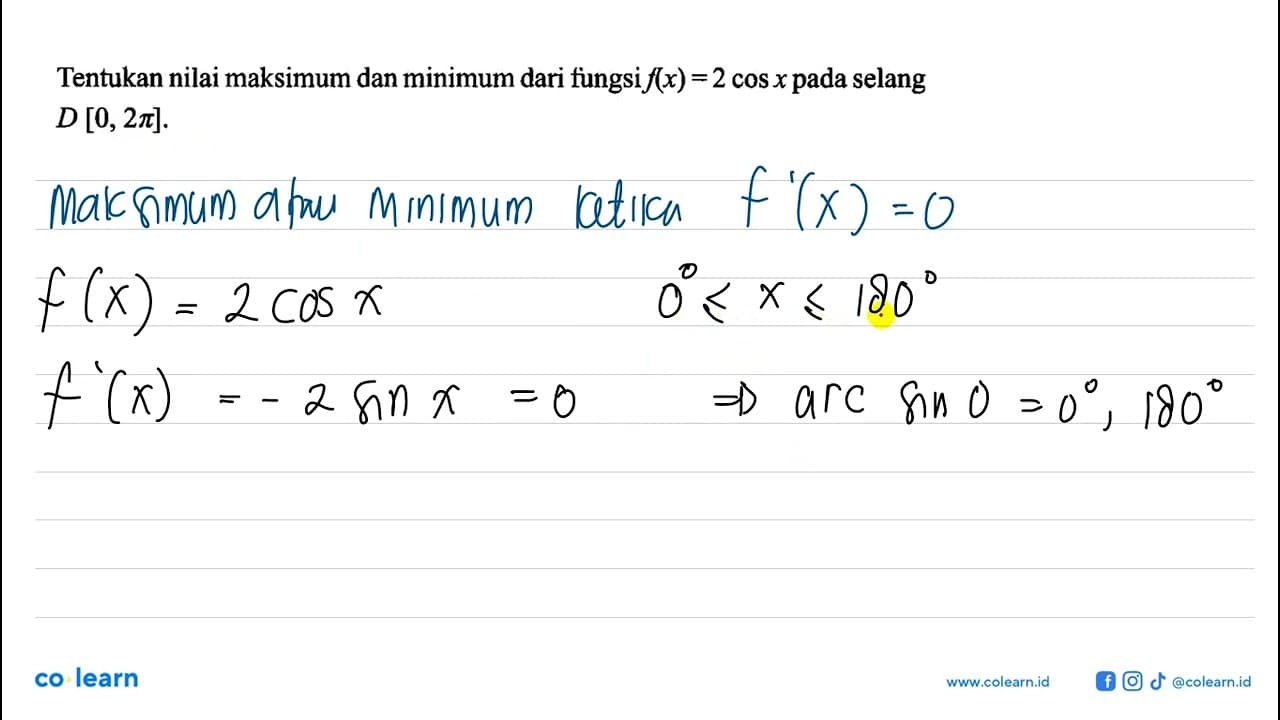 Tentukan nilai maksimum dan minimum dari fungsi f(x) = 2 cos x pada selang
D [0, 2π].
Maksimum atau Minimum ketika f'(x) = 0
f(x) = 2 cos x 0° ≤ x ≤ 180°
f'(x) = - 2 sin x = 0 ⇒ arc sin 0 = 0°, 180°
co learn www.colearn.id @colearn.id